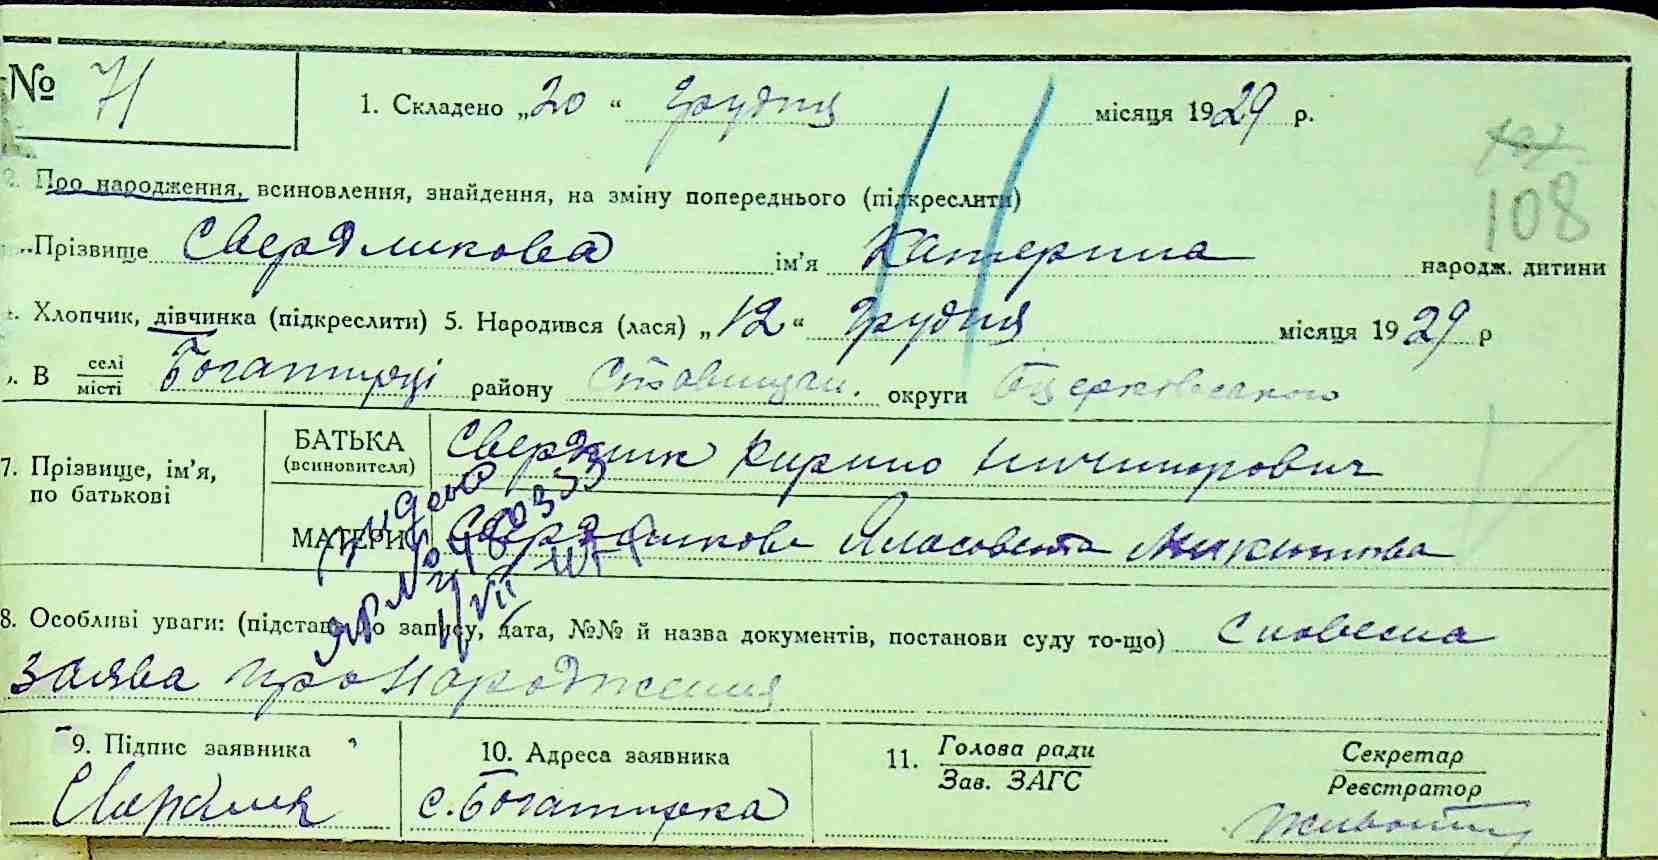 № 71
1. Складено „20“ грудня місяця 1929 р.
108
Про народження, всиновлення, знайдення, на зміну попереднього (підкреслити)
Прізвище Свердликова ім'я Катерина народж. дитини
Хлопчик, дівчинка (підкреслити) 5. Народився (лася) „12“ грудня місяця 1929 р
В селі місті Богатирці району Ставищан. округи Бцерковського
7. Прізвище, ім'я, по батькові
БАТЬКА (всиновителя) Свердлик Кирило Ничипорович
МАТЕРИ Свердликова Яласовета Микитова
8. Особливі уваги: (підстава до запису, дата, №№ й назва документів, постанови суду то-що) Словесна
заява про народження
9. Підпис заявника Свердлик
10. Адреса заявника с. Богатирка
11. Голова ради Зав. ЗАГС
Секретар Реєстратор